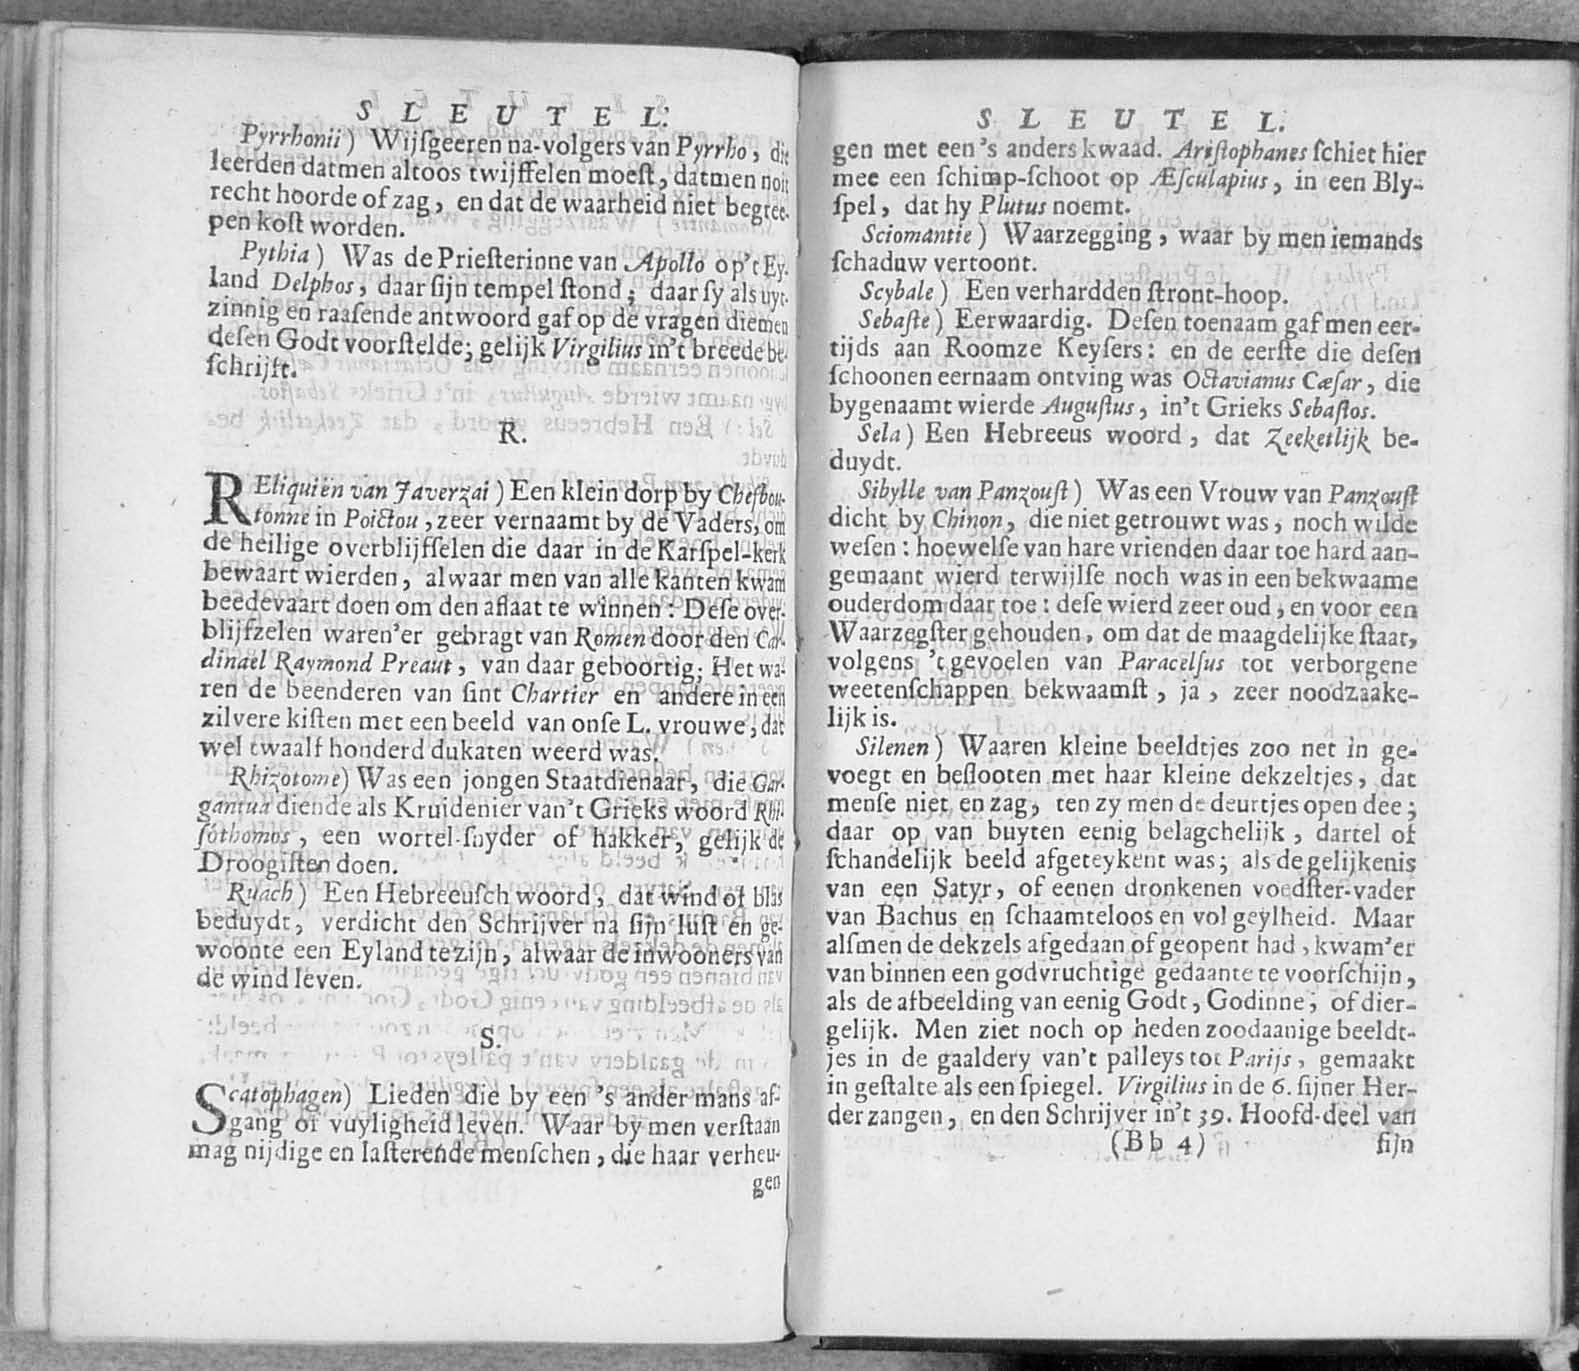 SLEUTEL.
Pyrrhonii) Wijſgeeren na-volgers van Pyrrho, die
leerden datmen altoos twijffelen moeſt, datmen noit
recht hoorde of zag, en dat de waarheid niet begree-
pen koſt worden.
Pythia) Was de Prieſterinne van Apollo op't Ey-
land Delphos, daar ſijn tempel ſtond; daar ſy als uyt-
zinnig en raaſende antwoord gaf op de vragen diemen
deſen Godt voorſtelde; gelijk Virgilius in't breede be-
ſchrijft.
R.
REliquiën van Javerzai) Een klein dorp by Chesbou-
tonne in Poictou, zeer vernaamt by de Vaders, om
de heilige overblijfſelen die daar in de Karſpel-kerk
bewaart wierden, alwaar men van alle kanten kwam
beedevaart doen om den aflaat te winnen: Deſe over-
blijfzelen waren'er gebragt van Romen door den Car-
dinael Raymond Preaut, van daar geboortig; Het wa-
ren de beenderen van ſint Chartier en andere in een
zilvere kiſten met een beeld van onſe L. vrouwe, dat
wel twaalf honderd dukaten weerd was.
Rhizotome) Was een jongen Staatdienaar, die Gar-
gantua diende als Kruidenier van't Grieks woord Rhi-
ſothomos, een wortel-ſnyder of hakker, gelijk de
Droogiſten doen.
Ruach) Een Hebreeuſch woord, dat wind of blas
beduydt, verdicht den Schrijver na ſijn luſt en ge-
woonte een Eyland te zijn, alwaar de inwooners van
de wind leven.
S.
Scatophagen) Lieden die by een 's ander mans af-
gang of vuyligheid leven. Waar by men verſtaan
mag nijdige en laſterende menſchen, die haar verheu-
gen
SLEUTEL.
gen met een 's anders kwaad. Ariſtophanes ſchiet hier
mee een ſchimp-ſchoot op Æſculapius, in een Bly-
ſpel, dat hy Plutus noemt.
Sciomantie) Waarzegging, waar by men iemands
ſchaduw vertoont.
Scybale) Een verhardden ſtront-hoop.
Sebaſte) Eerwaardig. Deſen toenaam gaf men eer-
tijds aan Roomze Keyſers: en de eerſte die deſen
ſchoonen eernaam ontving was Octavianus Cæſar, die
bygenaamt wierde Auguſtus, in't Grieks Sebaſtos.
Sela) Een Hebreeus woord, dat Zeeketlijk be-
duydt.
Sibylle van Panzouſt) Was een Vrouw van Panzouſt
dicht by Chinon, die niet getrouwt was, noch wilde
weſen: hoewelſe van hare vrienden daar toe hard aan-
gemaant wierd terwijlſe noch was in een bekwaame
ouderdom daar toe: deſe wierd zeer oud, en voor een
Waarzegſter gehouden, om dat de maagdelijke ſtaat,
volgens 't gevoelen van Paracelſus tot verborgene
weetenſchappen bekwaamſt, ja, zeer noodzaake-
lijk is.
Silenen) Waaren kleine beeldtjes zoo net in ge-
voegt en beſlooten met haar kleine dekzeltjes, dat
menſe niet en zag, ten zy men de deurtjes open dee;
daar op van buyten eenig belagchelijk, dartel of
ſchandelijk beeld afgeteykent was; als de gelijkenis
van een Satyr, of eenen dronkenen voedſter-vader
van Bachus en ſchaamteloos en vol geylheid. Maar
alſmen de dekzels afgedaan of geopent had, kwam'er
van binnen een godvruchtige gedaante te voorſchijn,
als de afbeelding van eenig Godt, Godinne, of dier-
gelijk. Men ziet noch op heden zoodaanige beeldt-
jes in de gaaldery van't palleys tot Parijs, gemaakt
in geſtalte als een ſpiegel. Virgilius in de 6. ſijner Her-
der zangen, en den Schrijver in't 39. Hoofd-deel van
(Bb 4) ſijn